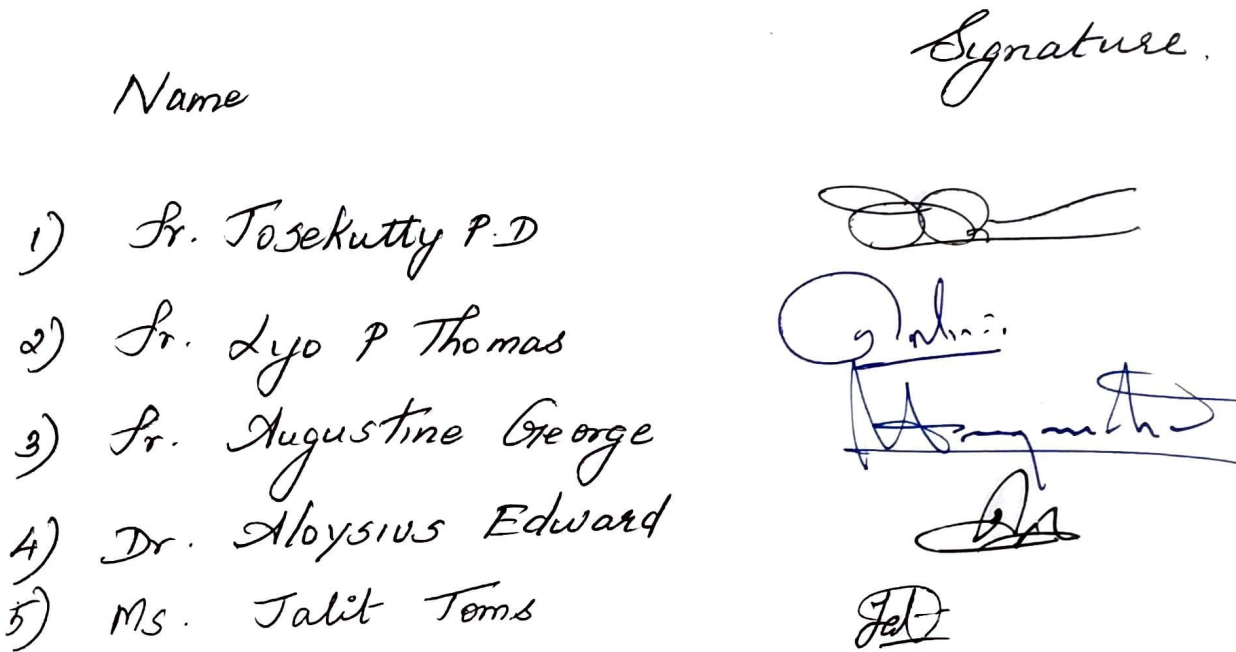 Name Signature.
1) Fr. Josekutty P.D
2) Fr. Lyo P Thomas
3) Fr. Augustine George
4) Dr. Aloysius Edward
5) Ms. Jalit Toms